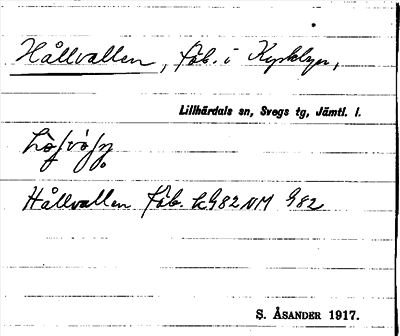 Hållvallen, fäb. i Kyrkbyn,
Lillhärdals sn, Svegs tg, Jämtl. l.
Hållvallen fäb. G82NM 982
S. ÅSANDER 1917.